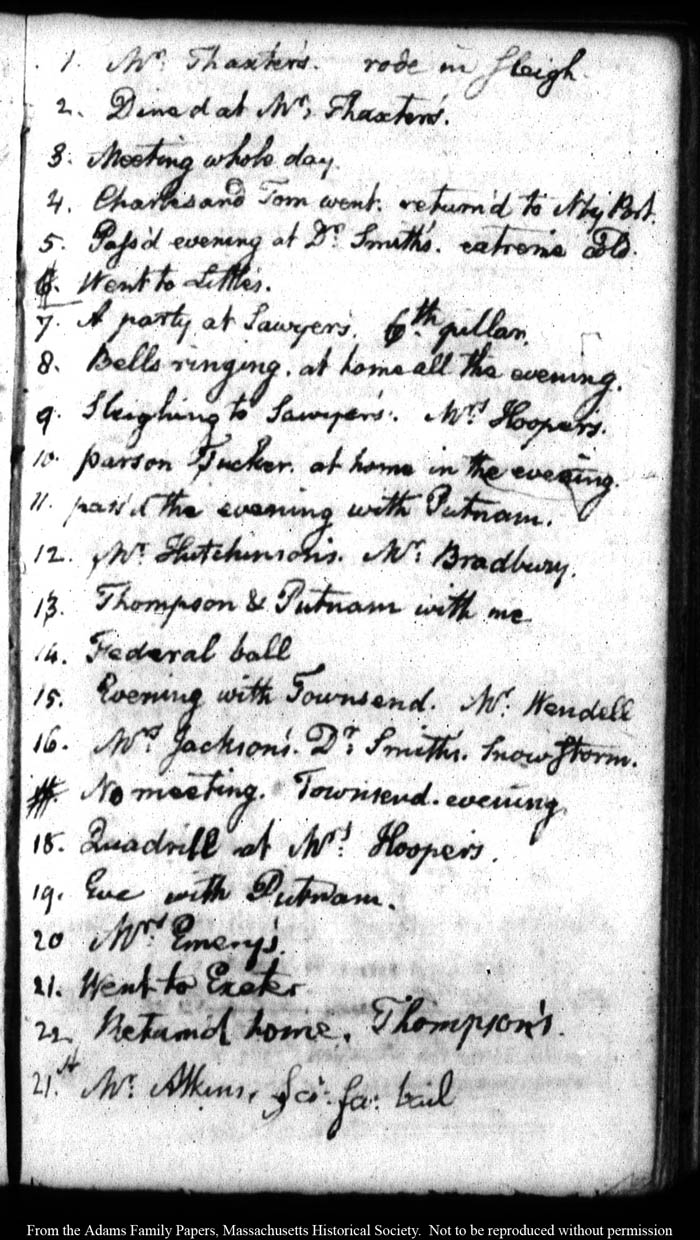 1. Mr. Thaxter's. rode in Sleigh.
2. Dined at Mr. Thaxter's.
3. Meeting whole day.
4. Charles and Tom went. return'd to N by Port.
5. Pass'd evening at Dr. Smith's. extreme cold.
6. Went to Little's.
7. A party at Sawyer's. 6th. pillar.
8. Bells ringing. at home all the evening.
9. Sleighing to Sawyer's. Mrs. Hooper's.
10. parson Tucker. at home in the evening.
11. pass'd the evening with Putnam.
12. Mr. Hutchinson's. Mr. Bradbury.
13. Thompson & Putnam with me
14. Federal ball
15. Evening with Townsend. Mr. Wendell
16. Mrs. Jackson's. Dr. Smith's. Snow Storm.
No meeting. Townsend. evening
18. Quadrill at Mrs. Hooper's.
19. Eve with Putnam.
20 Mrs. Emery's.
21. Went to Exeter
22. Return'd home. Thompson's.
21. Mr. Atkins, Sci: fa: bail
From the Adams Family Papers, Massachusetts Historical Society. Not to be reproduced without permission